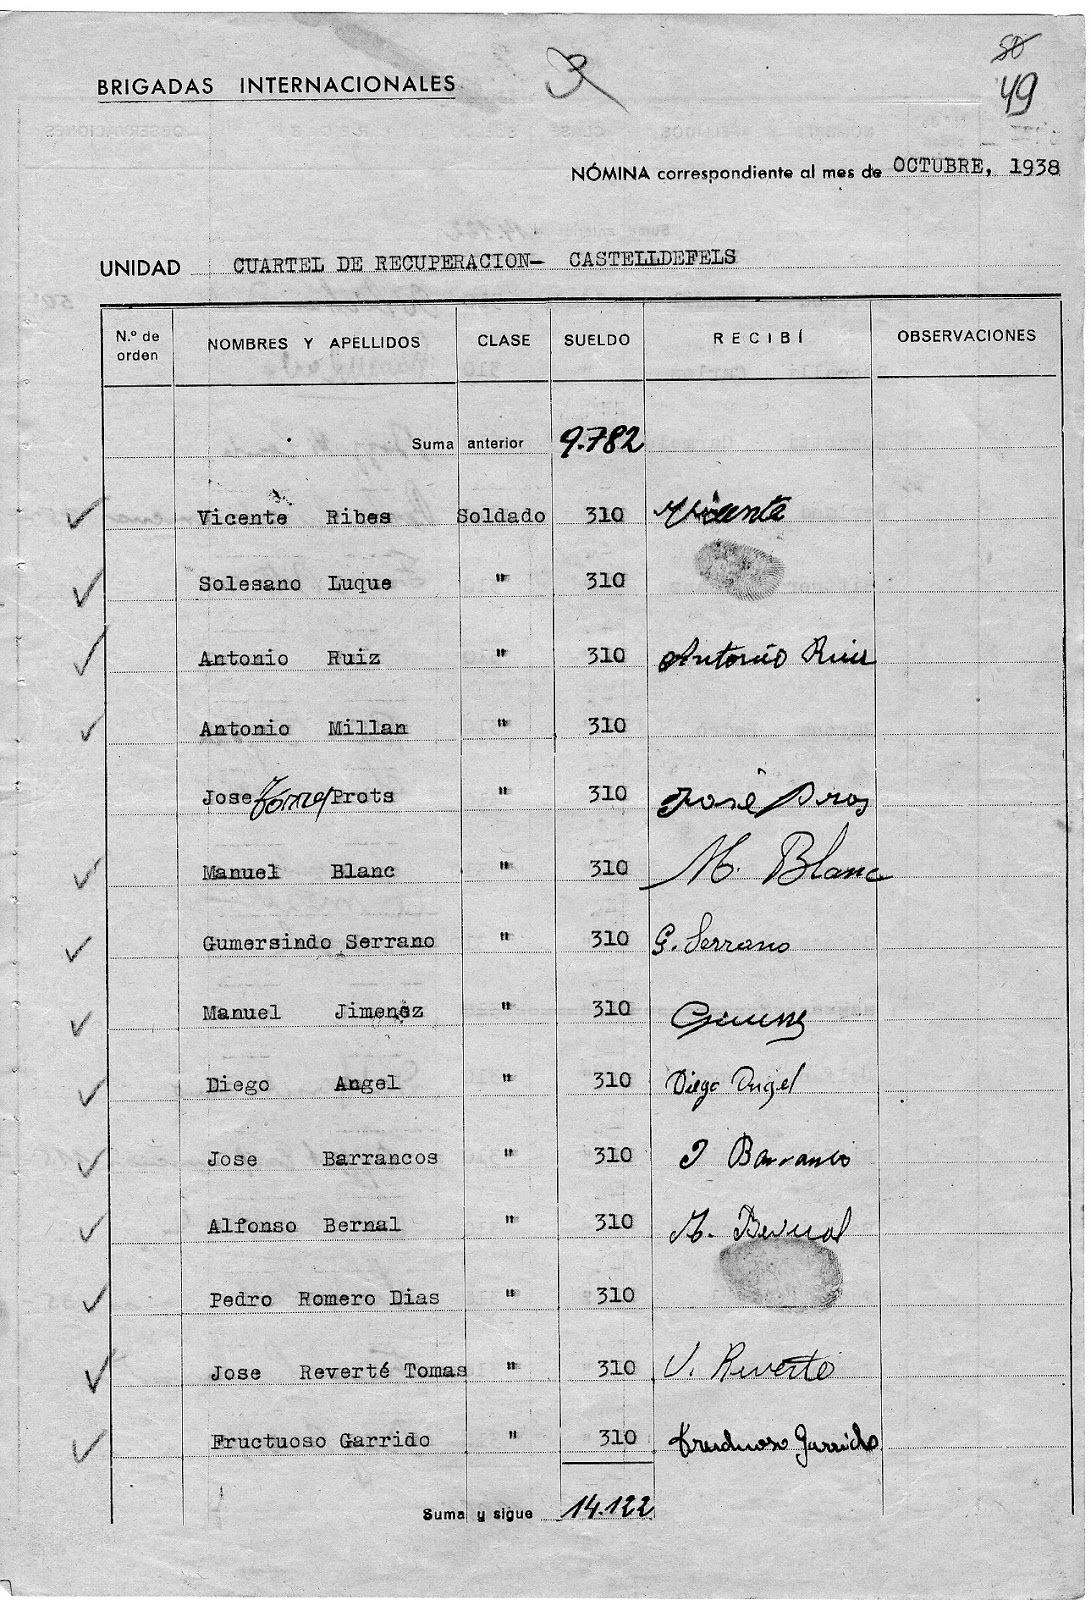 50
49
3
BRIGADAS INTERNACIONALES
NÓMINA correspondiente al mes de OCTUBRE, 1938
UNIDAD CUARTEL DE RECUPERACION- CASTELLDEFELS
N.º de orden NOMBRES Y APELLIDOS CLASE SUELDO RECIBÍ OBSERVACIONES
Suma anterior 9.782
Vicente Ribes Soldado 310 Vicente
Solesano Luque " 310
Antonio Ruiz " 310 Antonio Ruiz
Antonio Millan " 310
Jose Prots " 310 José Pros
Manuel Blanc " 310 M. Blanc
Gumersindo Serrano " 310 G. Serrano
Manuel Jimenez " 310
Diego Angel " 310 Diego Angel
Jose Barrancos " 310 J Barranco
Alfonso Bernal " 310 A. Bernal
Pedro Romero Dias " 310
Jose Reverté Tomas " 310 J. Reverte
Fructuoso Garrido " 310 Fructuoso Garrido
Suma y sigue 14.122